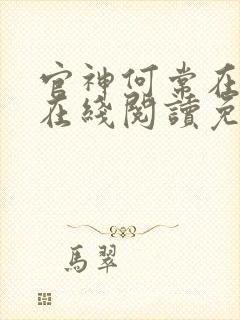 官神何常在
在綫閱讀免
馬翠